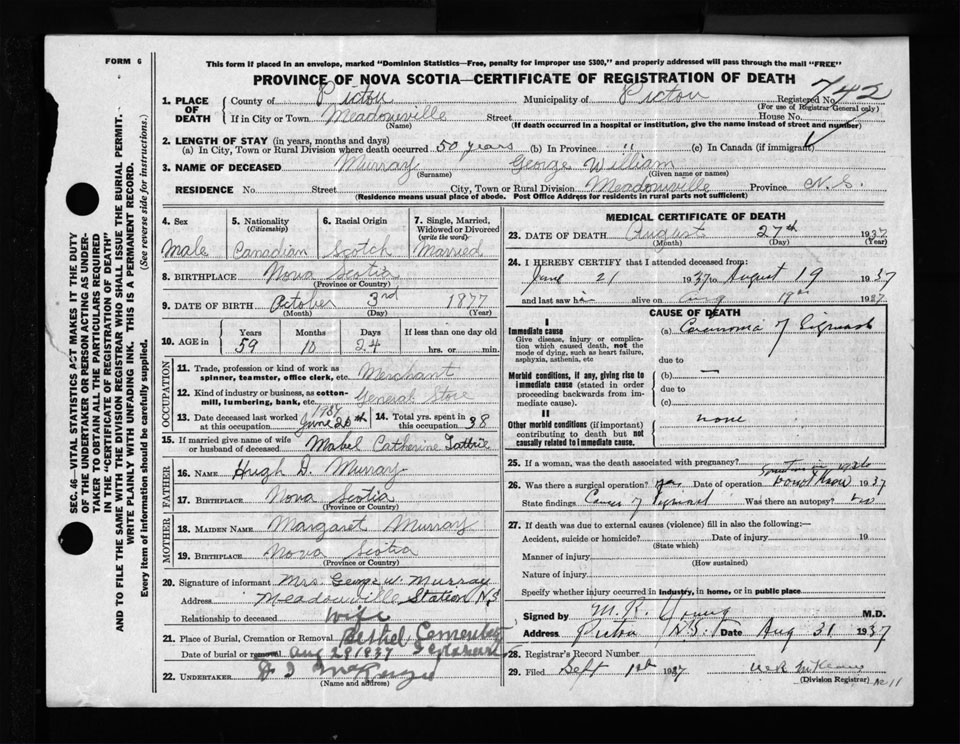 FORM 6
This form if placed in an envelope, marked "Dominion Statistics—Free, penalty for improper use $300," and properly addressed will pass through the mail "FREE"
PROVINCE OF NOVA SCOTIA—CERTIFICATE OF REGISTRATION OF DEATH
742
1. PLACE OF DEATH County of Pictou Municipality of Pictou Registered No.
(For use of Registrar General only)
If in City or Town Meadowville Street House No.
(Name) (If death occurred in a hospital or institution, give the name instead of street and number)
2. LENGTH OF STAY (in years, months and days)
(a) In City, Town or Rural Division where death occurred 50 years (b) In Province " (c) In Canada (if immigrant)
3. NAME OF DECEASED Murray George William
(Surname) (Given name or names)
RESIDENCE No. Street City, Town or Rural Division Meadowville Province N.S.
(Residence means usual place of abode. Post Office Address for residents in rural parts not sufficient)
4. Sex Male
5. Nationality (Citizenship) Canadian
6. Racial Origin Scotch
7. Single, Married, Widowed or Divorced (write the word) Married
8. BIRTHPLACE Nova Scotia
(Province or Country)
9. DATE OF BIRTH October 3rd 1877
(Month) (Day) (Year)
10. AGE in Years 59 Months 10 Days 24 If less than one day old hrs. or min.
OCCUPATION
11. Trade, profession or kind of work as spinner, teamster, office clerk, etc. Merchant
12. Kind of industry or business, as cotton-mill, lumbering, bank, etc. General Store
13. Date deceased last worked at this occupation 1937 June 20th
14. Total yrs. spent in this occupation 38
15. If married give name of wife or husband of deceased Mabel Catherine Tattrie
FATHER
16. NAME Hugh D. Murray
17. BIRTHPLACE Nova Scotia
(Province or Country)
MOTHER
18. MAIDEN NAME Margaret Murray
19. BIRTHPLACE Nova Scotia
(Province or Country)
20. Signature of informant Mrs George W. Murray
Address Meadowville Station N.S
Relationship to deceased Wife
21. Place of Burial, Cremation or Removal Bethel Cemetery
Date of burial or removal Aug 29 1937
22. UNDERTAKER
(Name and address)
MEDICAL CERTIFICATE OF DEATH
23. DATE OF DEATH August 27th 1937
(Month) (Day) (Year)
24. I HEREBY CERTIFY that I attended deceased from:
June 21 1937 to August 19 1937
and last saw him alive on Aug 19th 1937
CAUSE OF DEATH
I
Immediate cause
Give disease, injury or complication which caused death, not the mode of dying, such as heart failure, asphyxia, asthenia, etc
(a) Carcinoma of
due to
Morbid conditions, if any, giving rise to immediate cause (stated in order proceeding backwards from immediate cause).
(b) —
due to
(c)
II
Other morbid conditions (if important) contributing to death but not causally related to immediate cause.
none
25. If a woman, was the death associated with pregnancy?
26. Was there surgical operation? yes Date of operation 1937
State findings Cancer of Was there an autopsy? no
27. If death was due to external causes (violence) fill in also the following:—
Accident, suicide or homicide? Date of injury 19
(State which)
Manner of injury
(How sustained)
Nature of injury
Specify whether injury occurred in industry, in home, or in public place
Signed by M. R. Young M.D.
Address Pictou N.S. Date Aug 31 1937
28. Registrar's Record Number
29. Filed Sept 1st 1937
(Division Registrar) No 11
SEC. 46—VITAL STATISTICS ACT MAKES IT THE DUTY
OF THE UNDERTAKER OR PERSON ACTING AS UNDER-
TAKER TO OBTAIN ALL THE PARTICULARS REQUIRED
IN THE "CERTIFICATE OF REGISTRATION OF DEATH"
AND TO FILE THE SAME WITH THE DIVISION REGISTRAR WHO SHALL ISSUE THE BURIAL PERMIT.
WRITE PLAINLY WITH UNFADING INK. THIS IS A PERMANENT RECORD.
Every item of information should be carefully supplied. (See reverse side for instructions.)